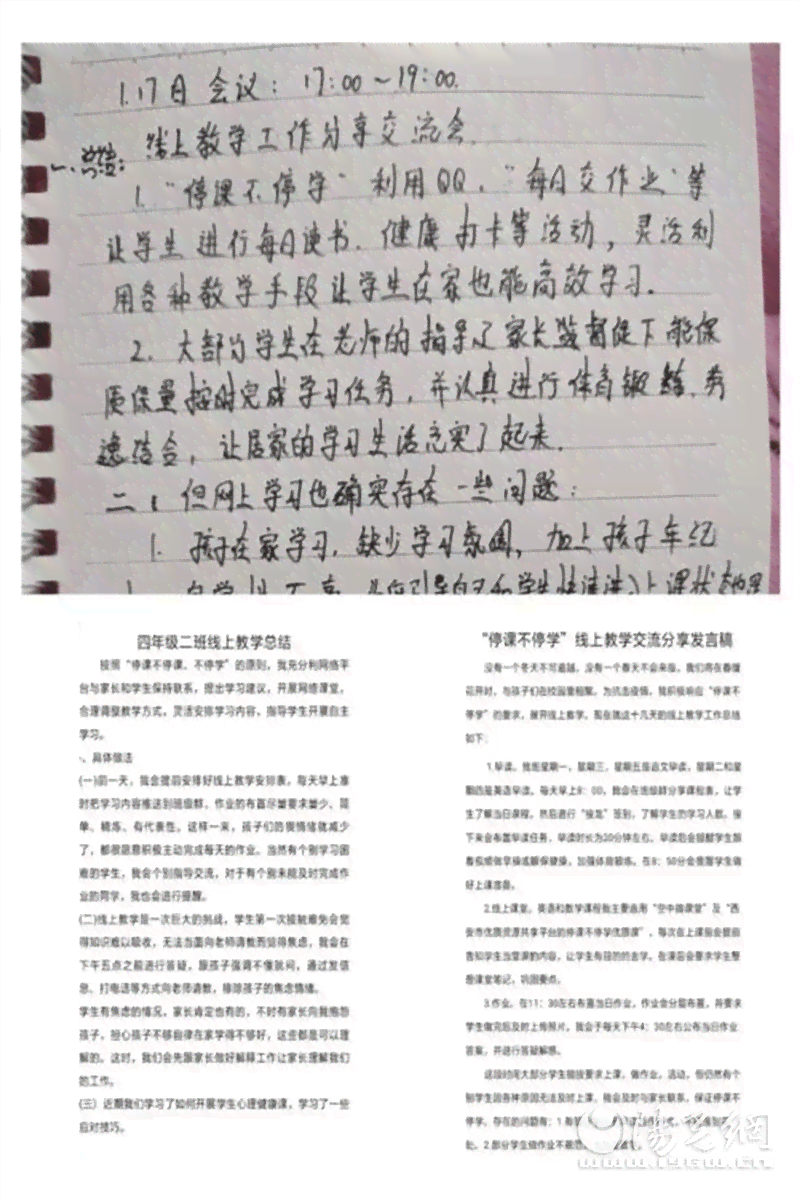 1.17日 会议: 17:00~19:00.
线上教学工作分享交流会.
一、总结:
1. "停课不停学" 利用QQ、"每日交作业"等
让学生进行每日读书、健康打卡等活动,灵活利
用各种教学手段让学生在家也能高效学习.
2. 大部分学生在老师的指导及家长监督促下能保
质保量按时完成学习任务,并认真进行体育锻炼.劳
逸结合,让居家的学习生活充实了起来.
二、但网上学习也确实存在一些问题:
1. 孩子在家学习,缺少学习氛围,加上孩子年纪
四年级二班线上教学总结
按照“停课不停课、不停学”的原则,我充分利网络平
台与家长和学生保持联系,提出学习建议,开展网络课堂,
合理调整教学方式,灵活安排学习内容,指导学生开展自主
学习。
、具体做法
(一)前一天,我会提前安排好线上教学安排表,每天早上准
时把学习内容推送到班级群,作业的布置尽量要求量少、简
单、精炼、有代表性。这样一来,孩子们的畏惧情绪就减少
了,都很愿意积极主动完成每天的作业。当然有个别学习困
难的学生,我会个别指导交流,对于有个别未能及时完成作
业的同学,我也会进行提醒。
(二)线上教学是一次巨大的挑战,学生第一次接触难免会觉
得知识难以吸收,无法当面向老师请教而觉得焦虑,我会在
下午五点之前进行答疑,跟孩子强调不懂就问,通过发信
息、打电话等方式向老师请教,排除孩子的焦虑情绪。
学生有焦虑的情况,家长肯定也有的,不时有家长向我抱怨
孩子,担心孩子不够自律在家学得不够好,这些都是可以理
解的。这时,我们会先跟家长做好解释工作让家长理解我们
的工作。
(三)近期我们学习了如何开展学生心理健康课,学习了一些
应对技巧。
“停课不停学”线上教学交流分享发言稿
没有一个冬天不可逾越,没有一个春天不会来临。我们将在春暖
花开时,与孩子们在校园里相聚。为抗击疫情,我积极响应“停课不
停学”的要求,展开线上教学。现在就这十几天的线上教学工作总结
如下:
1.早读。我班星期一,星期三,星期五是语文早读,星期二和星
期四是英语早读。每天早上8:00,我会在班级群分享课程表,让学
生了解当日课程。然后进行“接龙”签到,了解学生的学习人数。接
下来会布置早读任务,早读时长为20分钟左右。早读后会提醒学生跟
着视频做早操或眼保健操,加强体育锻炼。在8:50分会提醒学生做
好上课准备。
2.线上课堂。英语和数学课程我主要选用“空中微课堂”及“西
安市优质资源共享平台的停课不停学优质课”,每次在上课前会提前
告知学生当堂课的内容,让学生有目的的去学。在课后会要求学生整
理课堂笔记,巩固要点。
3.作业。在11:30左右布置当日作业,作业会分层布置,并要求
学生做完后及时上传照片。我会于每天下午4:30左右公布当日作业
答案,并进行答疑解惑。
这段时间大部分学生能按要求上课,做作业,活动,但仍然有个
别学生因各种原因无法及时上课,我会及时与家长联系,保证停课不
停学。存在的问题有:1.
处。2.部分学生做作业不能
汤芝网
www.i9gw.com.cn